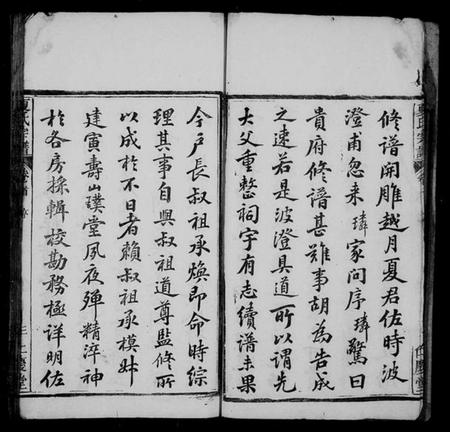 修譜開雕越月夏君佐時波
澄甫忽来璘家問序璘驚曰
貴府修譜甚難事胡為告成
之速若是波澄具道所以謂先
大父重整祠宇有志續譜未果
今戶長叔祖承煥即命時綜
理其事自與叔祖道尊監修所
以成於不日者賴叔祖承模姊
建寅壽山璞堂夙夜殫精淬神
於各房採輯校勘務極詳明佐
夏氏宗譜